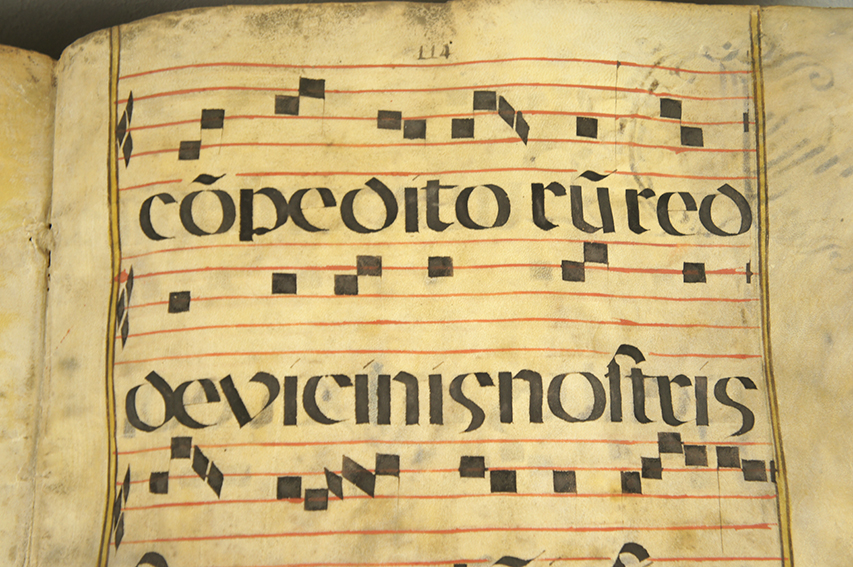 114
cõpedito rũ red
de vicinis noſtris